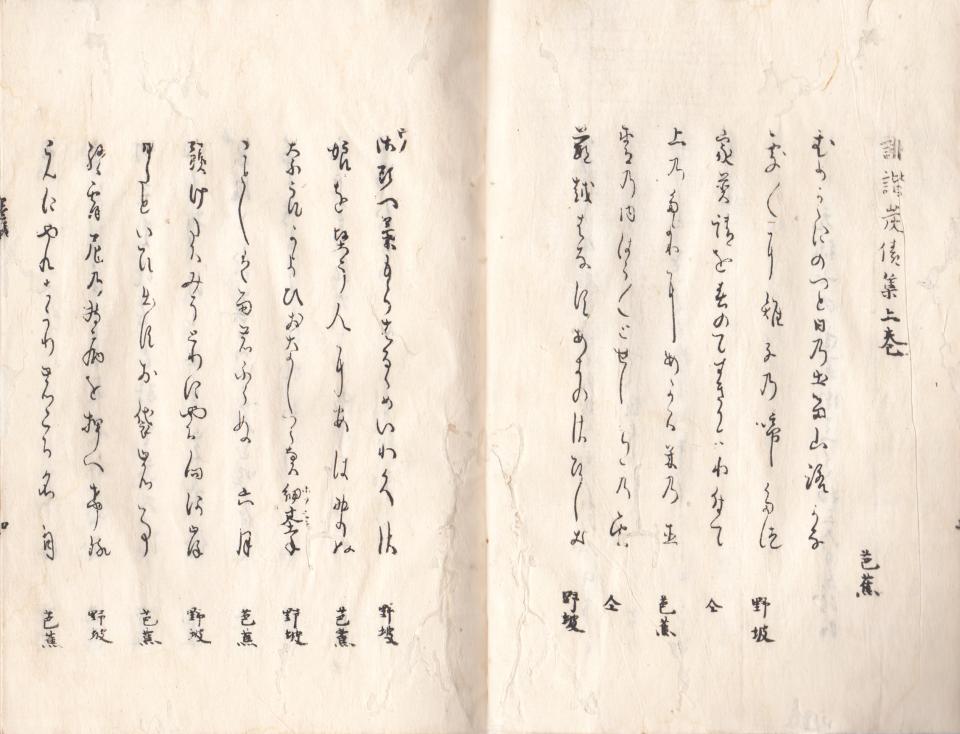 誹諧炭俵集上巻
芭蕉
むめかゝにのつと日乃出る山路かな
處〱に雉子乃啼たつ 野坡
家普請を春のてすきにとり付て 仝
上乃たよりにあかる米乃直 芭蕉
宵乃内はら〱とせし月乃雲 仝
藪越はなすあきのさひしき 野坡
御頭へ菊もらはるゝめいわくさ 野坡
娘を堅う人にあはせぬ 芭蕉
奈良かよひおなしつらなる細基手 野坡
ことしは雨のふらぬ六月 芭蕉
預けたるみそとりにやる向河岸 野坡
ひたといひ出すお袋の事 芭蕉
終宵尼乃持病を押へける 野坡
こんにやくはかりのこる名月 芭蕉